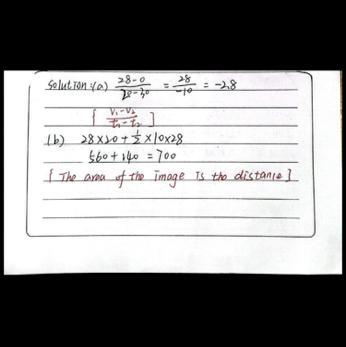 Solution:(a) 28-0/20-30 = 28/-10 = -2.8
[ V₁-V₂/t₁-t₂ ]
(b) 28×20+½×10×28
560+140=700
[ The area of the image is the distance ]